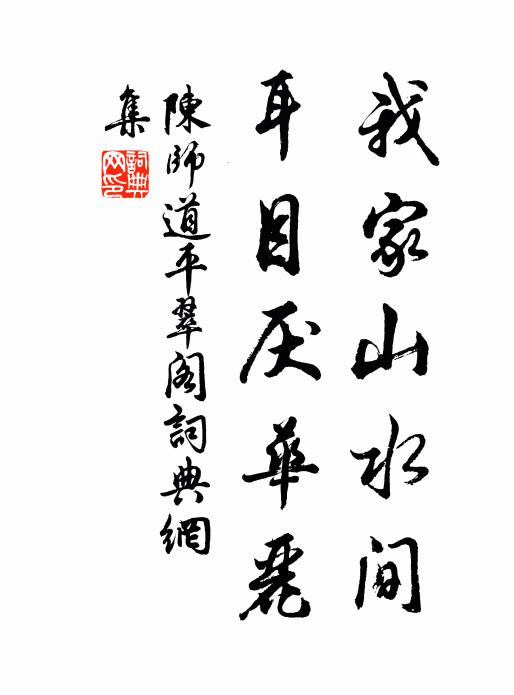 我家山水间
耳目厌华麗
陳師道平翠阁詞典網
集
詞典网印